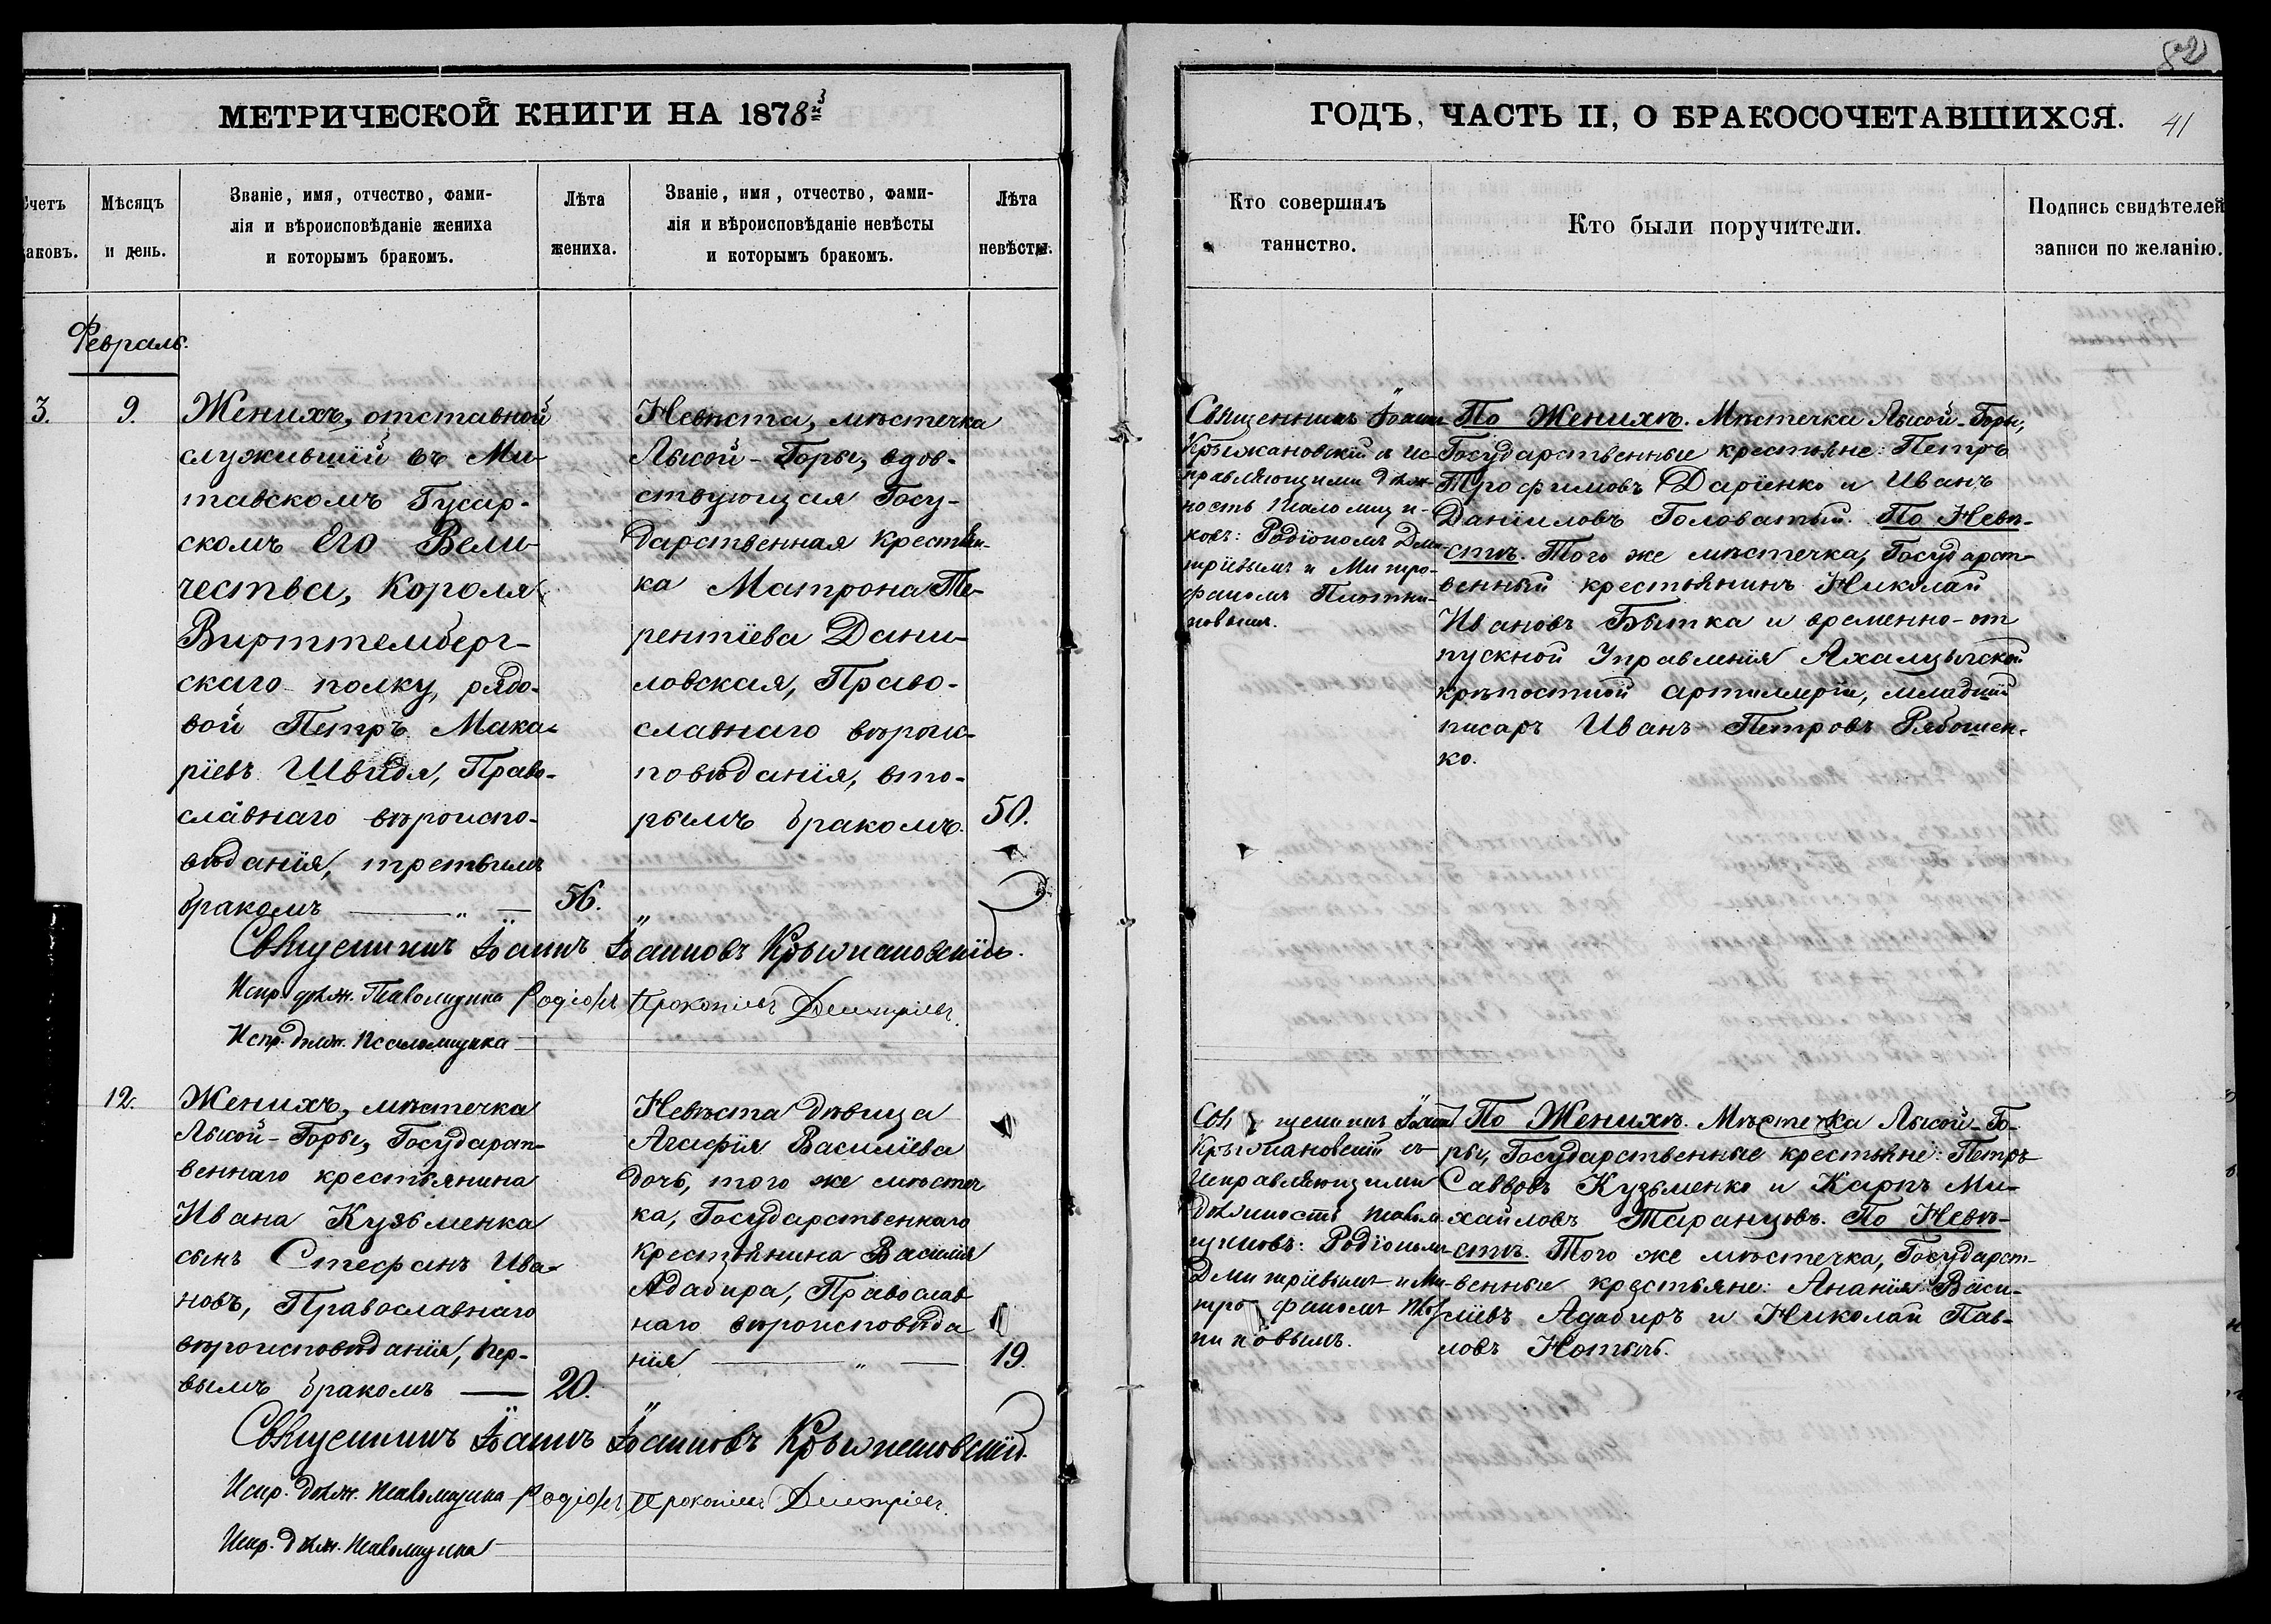 82
МЕТРИЧЕСКОЙ КНИГИ НА 1878й
ГОДЪ, ЧАСТЬ II, О БРАКОСОЧЕТАВШИХСЯ.
41
четъ
аковъ.
Мѣсяцъ
и день.
Званіе, имя, отчество, фами-
лія и вѣроисповѣданіе жениха
и которымъ бракомъ.
Лѣта
жениха.
Званіе, имя, отчество, фами-
лія и вѣроисповѣданіе невѣсты
и которымъ бракомъ.
Лѣта
невѣсты.
Кто совершилъ
таинство.
Кто были поручители.
Подпись свидѣтелей
записи по желанію.
Февраль.
3.
9.
Женихъ, отставной
служившій въ Ми-
тавскомъ Гусар-
скомъ Его Вели-
чества, Короля
Виртемберг-
скаго полку, рядо-
вой Петръ Мака-
ріевъ Швидя, Право-
славнаго вѣроиспо-
вѣданія, третьимъ
бракомъ
56.
Невѣста, мѣстечка
Лысой-Горы, вдов-
ствующая Госу-
дарственная крестьян-
ка Матрона Те-
рентіева Дани-
ловская, Право-
славнаго вѣроис-
повѣданія, вто-
рымъ бракомъ.
50.
Священникъ Іоаннъ
Крыжановскій съ ис-
правляющими долж-
ность Псаломщи-
ковъ: Родіономъ Дми-
тріевымъ и Митро-
фаномъ Плотни-
ковымъ.
По Женихѣ. Мѣстечка Лысой-Горы,
Государственные крестьяне: Петръ
Трофимовъ Даріенко и Иванъ
Даніиловъ Головатый. По Невѣ-
стѣ. Того же мѣстечка, Государст-
венный крестьянинъ Николай
Ивановъ Бытка и временно-от
пускной Управленія Ахалцыхской
крѣпостной артиллеріи, младшій
писарь Иванъ Петровъ Рябошен-
ко.
Священникъ Іоаннъ Іоанновъ Крыжановскій.
Испр. долж. Псаломщика Родіонъ Прокопіевъ Дмитріевъ.
Испр. долж. Псаломщика
12.
Женихъ, мѣстечка
Лысой-Горы, Государст-
веннаго крестьянина
Ивана Кузьменка
сынъ Стефанъ Ива-
новъ, Православнаго
вѣроисповѣданія, пер-
вымъ бракомъ
20.
Невѣста дѣвица
Агафія Василіева
дочь, того же мѣстеч
ка, Государственнаго
крестьянина Василія
Адабира, Православ
наго вѣроисповѣда
нія
19.
Священникъ Іоаннъ
Крыжановскій съ
исправляющими
должность псалом-
щиковъ: Родіономъ
Дмитріевымъ и Ми-
трофаномъ Плот
никовымъ.
По Женихѣ. Мѣстечка Лысой-Го-
ры, Государственные крестьяне: Петръ
Саввовъ Кузьменко и Карпъ Ми-
хайловъ Таранцовъ. По Невѣ-
стѣ. Того же мѣстечка, Государст-
венные крестьяне: Ананія Васи-
ліевъ Адабиръ и Николай Пав-
ловъ Нотычъ.
Священникъ Іоаннъ Іоанновъ Крыжановскій.
Испр. долж. Псаломщика Родіонъ Прокопіевъ Дмитріевъ.
Испр. долж. Псаломщика